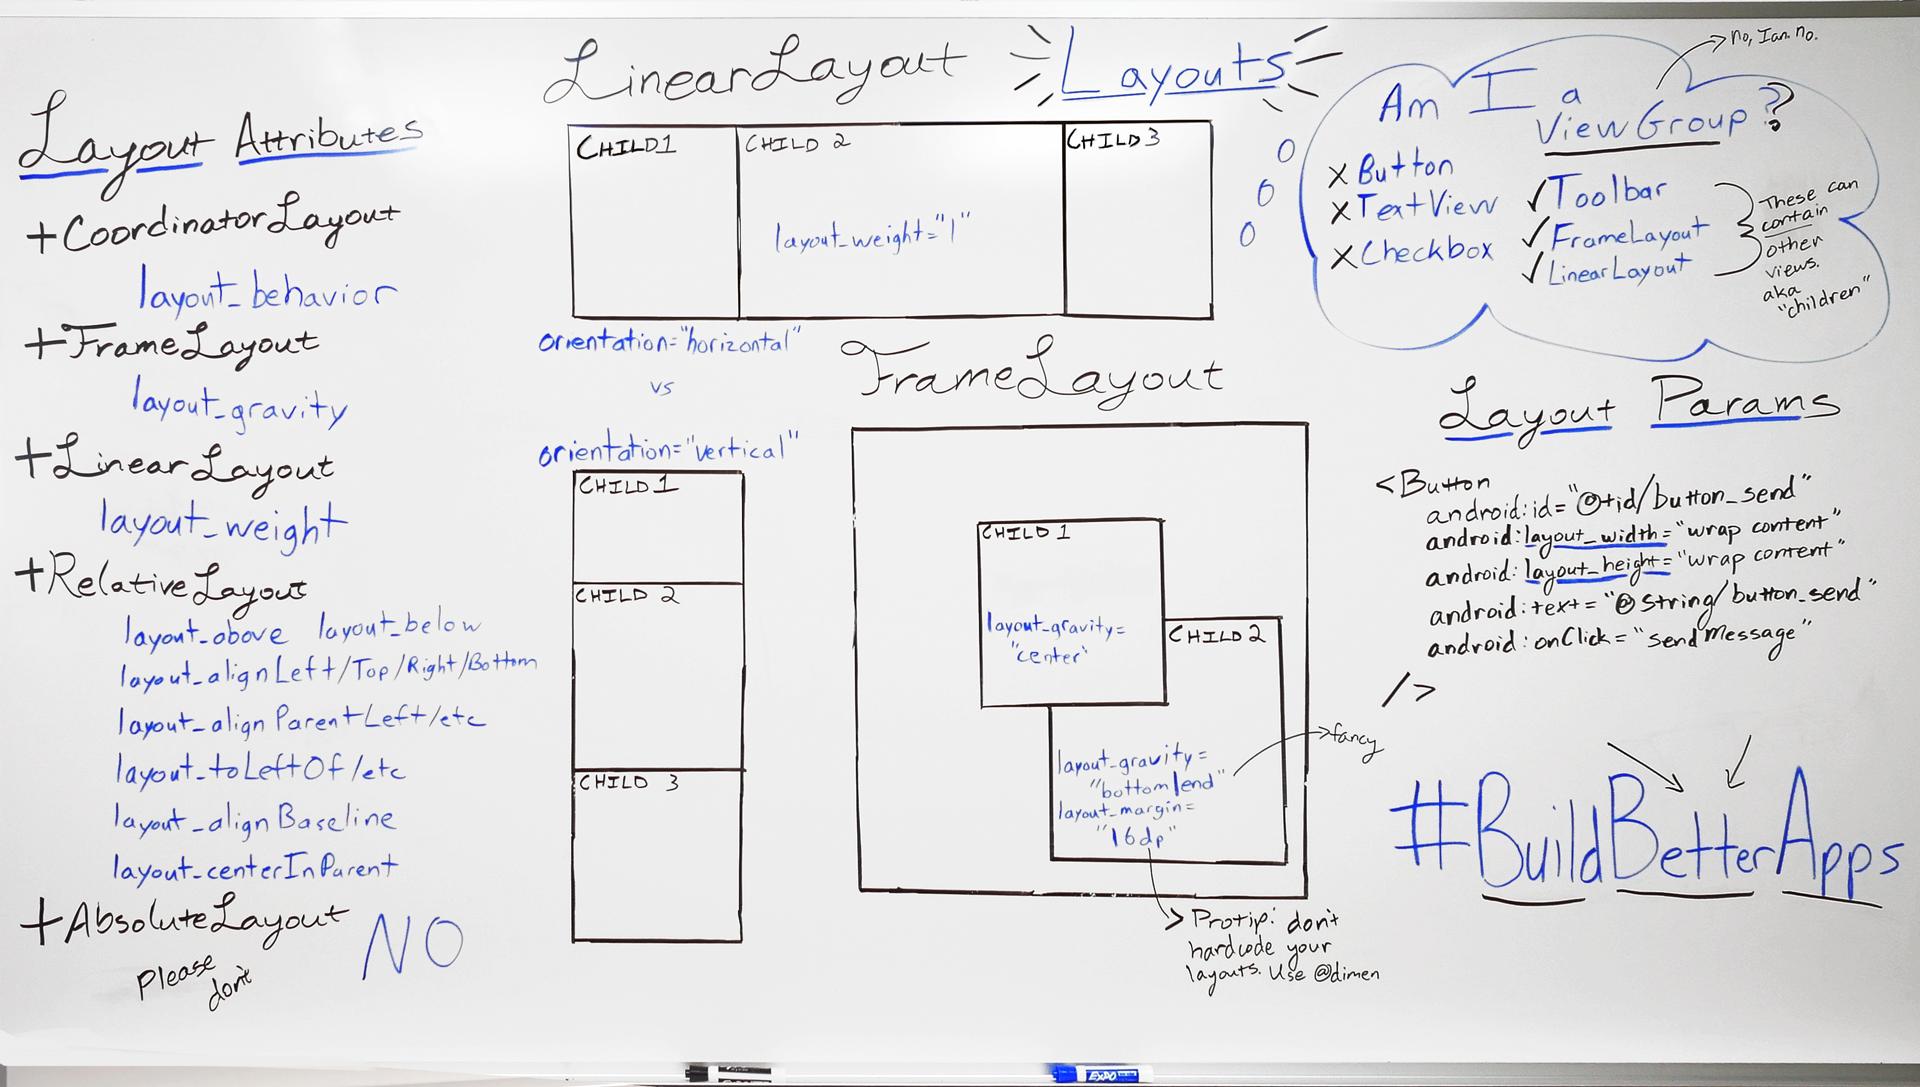 LinearLayout
Layouts
Layout Attributes
+CoordinatorLayout
layout_behavior
+FrameLayout
layout_gravity
+LinearLayout
layout_weight
+RelativeLayout
layout_above layout_below
layout_alignLeft/Top/Right/Bottom
layout_alignParentLeft/etc
layout_toLeftOf/etc
layout_alignBaseline
layout_centerInParent
+AbsoluteLayout
Please
don't
NO
CHILD1
CHILD 2
CHILD 3
layout_weight="1"
orientation="horizontal"
vs
orientation="vertical"
CHILD 1
CHILD 2
CHILD 3
FrameLayout
CHILD 1
layout_gravity=
"center"
CHILD 2
layout_gravity=
"bottom|end"
layout_margin=
"16dp"
fancy
Protip: don't
hardcode your
layouts. Use @dimen
no, Ian. no.
Am I a
ViewGroup?
X Button
X TextView
X Checkbox
✓ Toolbar
✓ FrameLayout
✓ LinearLayout
These can
contain
other
views.
aka
"children"
Layout Params
<Button
android:id="@+id/button_send"
android:layout_width="wrap content"
android:layout_height="wrap content"
android:text="@string/button_send"
android:onClick="sendMessage"
/>
#BuildBetterApps
EXPO